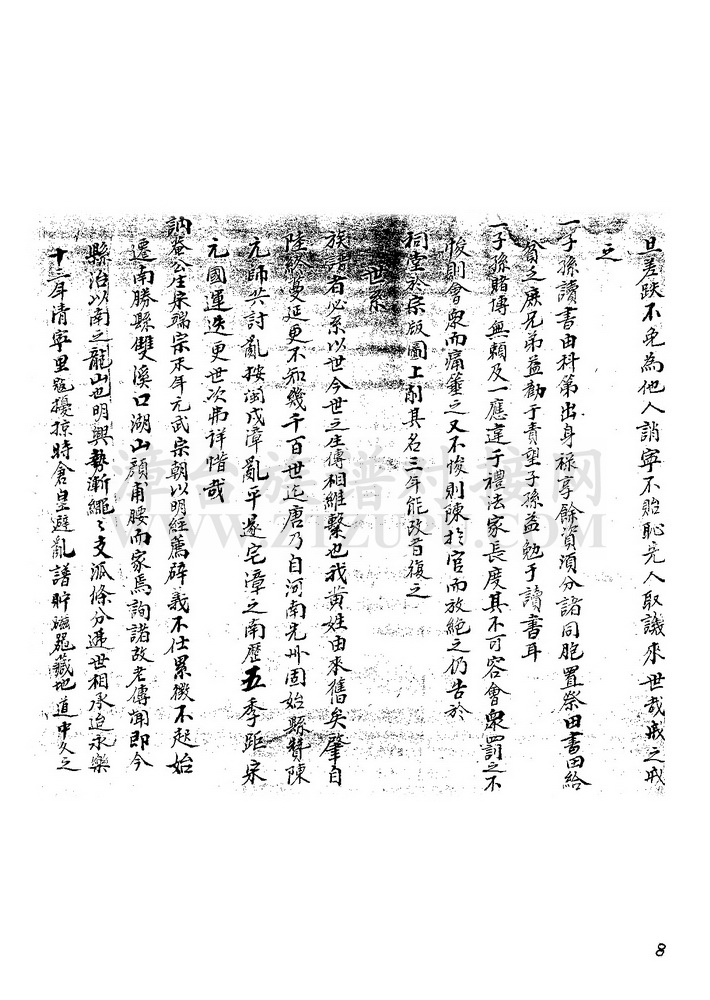 旦差跌不免為他人誚寧不貽恥先人取議來世哉戒之戒
之
一子孫讀書由科第出身祿享餘資須分諸同胞置祭田書田給
貧乏庶兄弟益勸于責望子孫益勉于讀書耳
一子孫賭博無賴及一應違于禮法家長度其不可容會衆罰之不
悛則會衆而痛箠之又不悛則陳於官而放絕之仍告於
祠堂於宗版圖上削其名三年能改者復之
世系
族譜者必系以世今世之生傳相維繫也我黃姓由來舊矣肇自
陸終蔓延更不知幾千百世迄唐乃自河南光州固始縣贊陳
元帥共討亂按閩戍漳亂平遂宅漳之南歷五季距宋
元國運迭更世次弗詳惜哉
訥菴公生宋端宗末年元武宗朝以明經薦辟義不仕累徵不起始
遷南勝縣雙溪口湖山頭甫腰而家焉詢諸故老傳聞即今
縣治以南之龍山也明興勢漸繩〻支派條分遞世相承迨永樂
十三年清寧里寇擾掠時倉皇避亂譜貯磁器藏地道中久之
漳台族譜對接網
WWW.ZTZUPU.COM
8